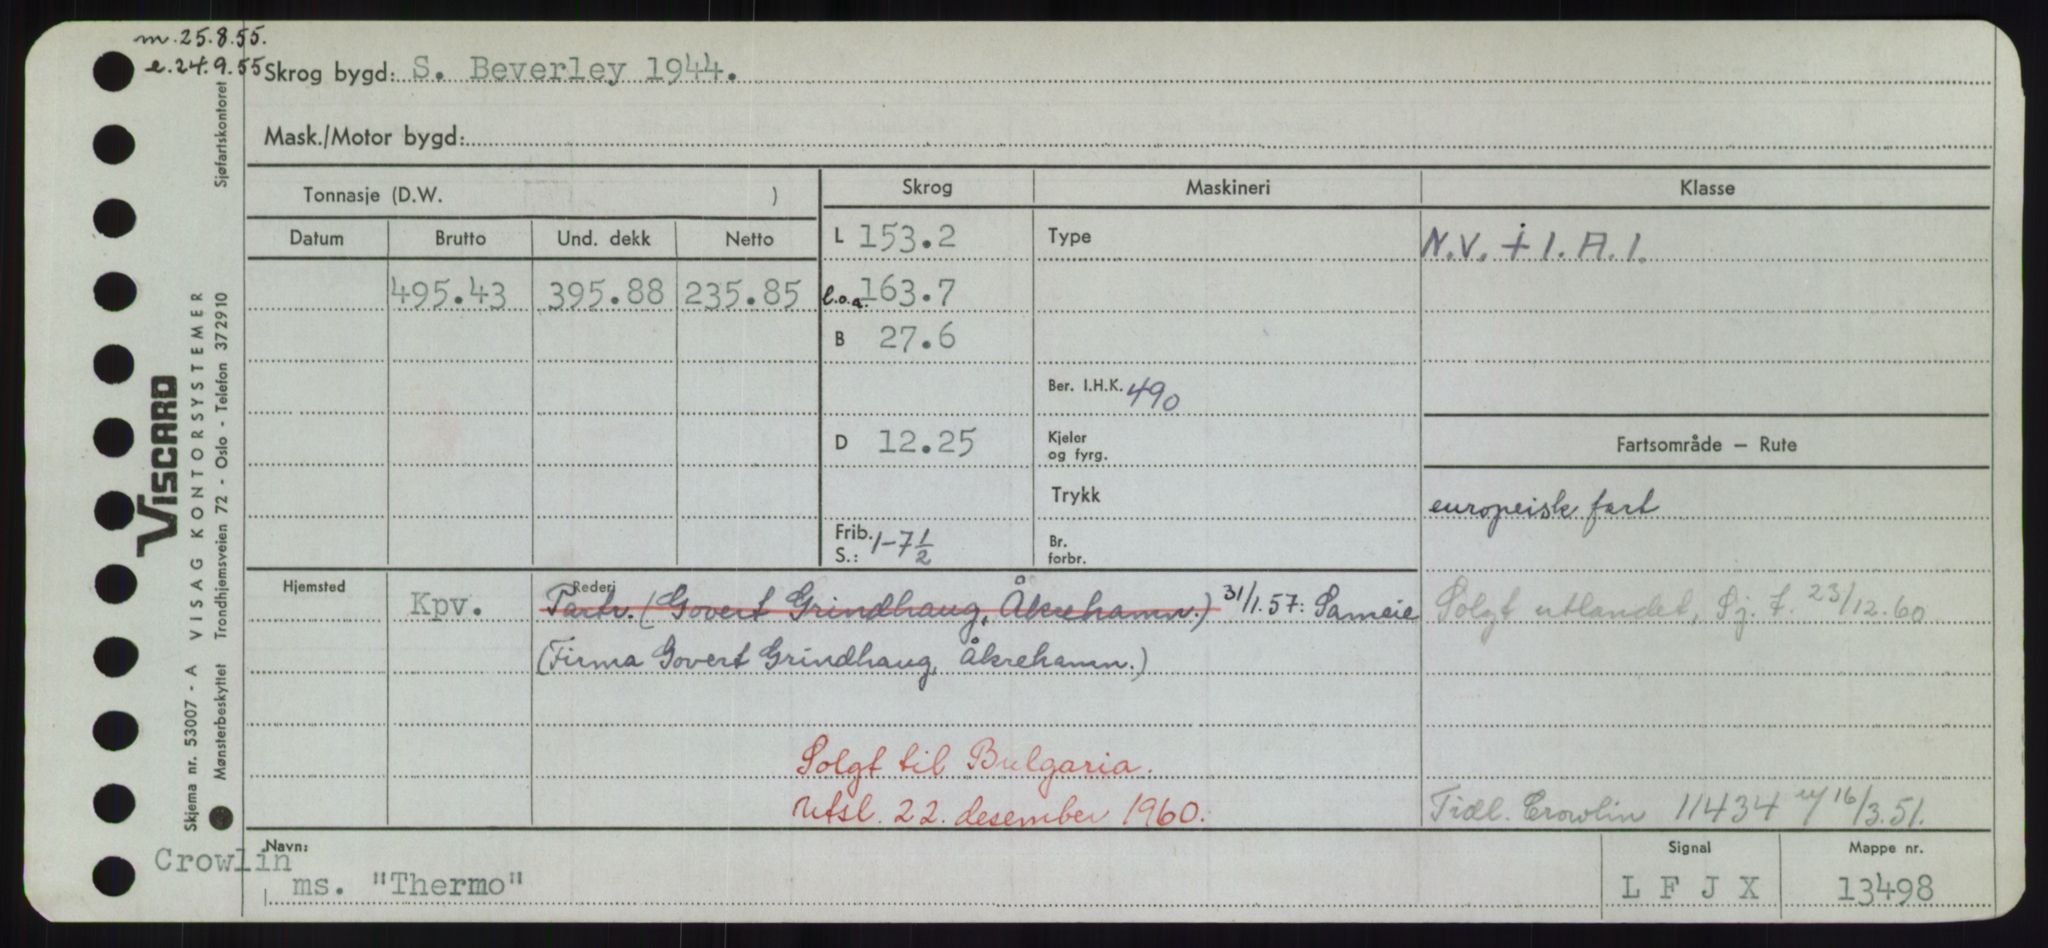 m. 25.8.55.
e. 24.9.55
Skrog bygd: S. Beverley 1944.
Mask./Motor bygd:
Tonnasje (D.W. )
Skrog
Maskineri
Klasse
Datum
Brutto
Und. dekk
Netto
L 153.2
Type
N.V. + 1. A. 1.
495.43
395.88
235.85
l.o.a. 163.7
B 27.6
Ber. I.H.K. 490
D 12.25
Kjeler
og fyrg.
Fartsområde – Rute
Trykk
europeisk fart
Frib.
S.: 1-7½
Br.
forbr.
Hjemsted
Kpv.
Rederi
Partr. (Govert Grindhaug, Åkrehamn.) 31/1.57: Sameie
(Firma Govert Grindhaug, Åkrehamn.)
Solgt utlandet, Sj. f. 23/12.60
Solgt til Bulgaria.
Utsl. 22. desember 1960.
Tidl. Crowlin 11434 16/3.51.
Crowlin
Navn:
ms. "Thermo"
Signal
L F J X
Mappe nr.
13498
Skjema nr. 53007 - A VISAG KONTORSYSTEMER
VISCARD
Mønsterbeskyttet Trondhjemsveien 72 - Oslo - Telefon 372910
Sjøfartskontoret